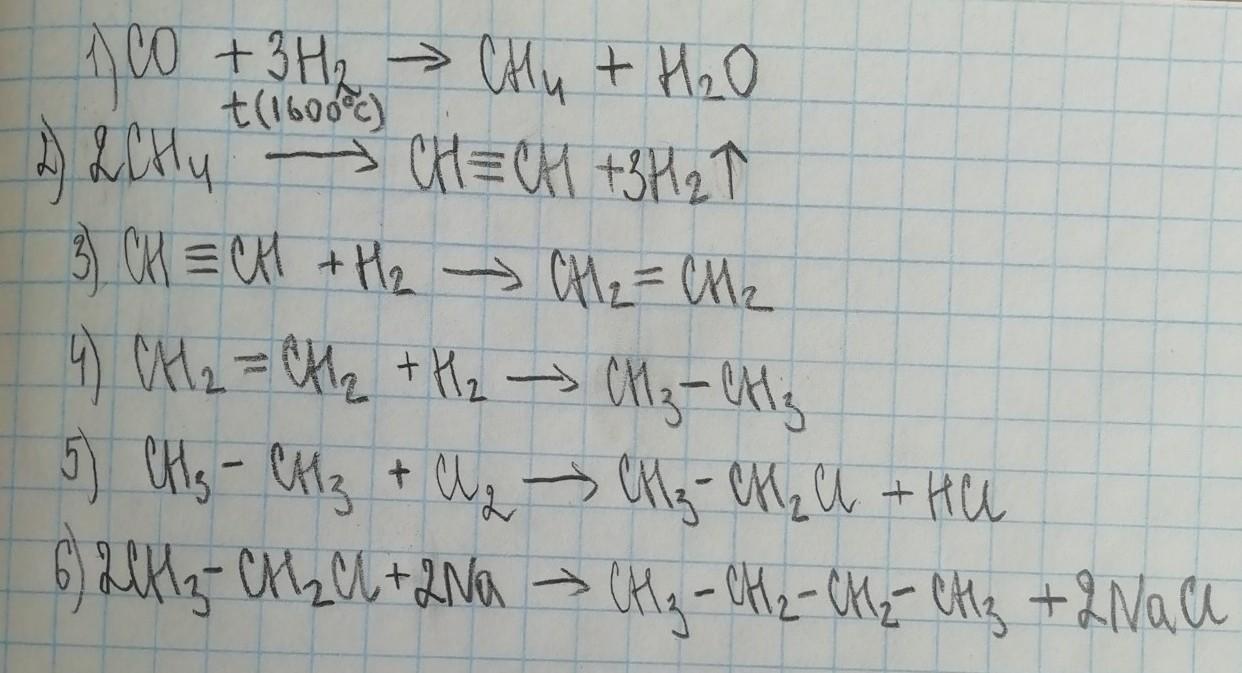 1) CO + 3H₂ → CH₄ + H₂O
t(1600°c)
2) 2CH₄ → CH≡CH +3H₂↑
3) CH≡CH + H₂ → CH₂=CH₂
4) CH₂=CH₂ + H₂ → CH₃-CH₃
5) CH₃-CH₃ + Cl₂ → CH₃-CH₂Cl + HCl
6) 2CH₃-CH₂Cl+2Na → CH₃-CH₂-CH₂-CH₃ +2NaCl